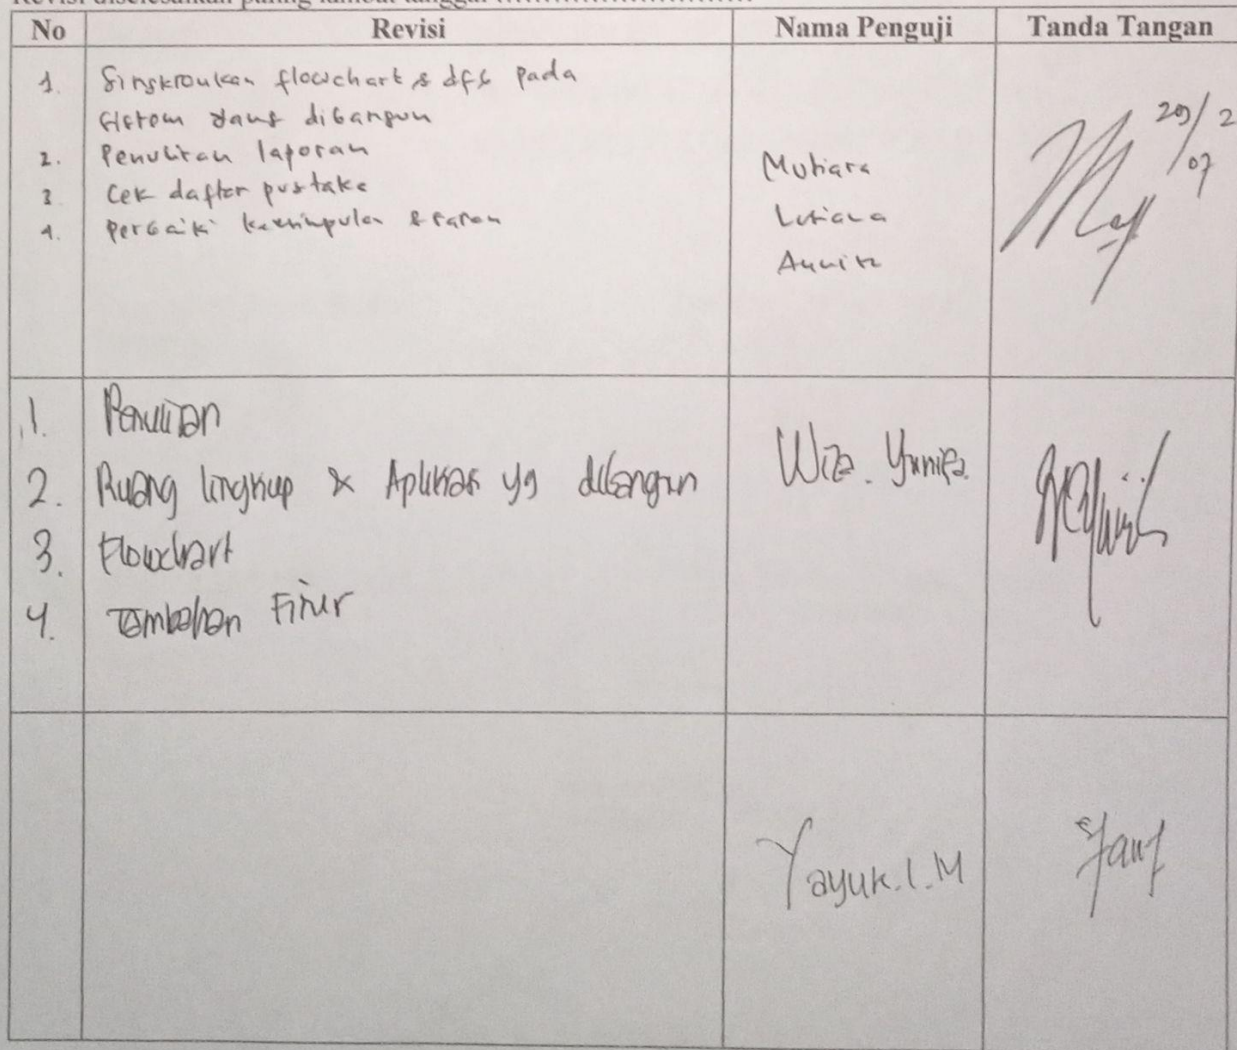 Revisi diselesaikan paling lambat tanggal ..............................
No Revisi Nama Penguji Tanda Tangan
1. Singkronkan flowchart & dfd pada
sistem yang dibangun
2. Penulisan laporan
3 Cek daftar pustaka
4. Perbaiki kesimpulan & saran
Mutiara
Lusiana
Annita
29/2
07
1. Penulisan
2. Ruang lingkup & Aplikasi yg dibangun
3. Flowchart
4. Tambahan Fitur
Wiza. Yunifa.
Yayuk.I.M